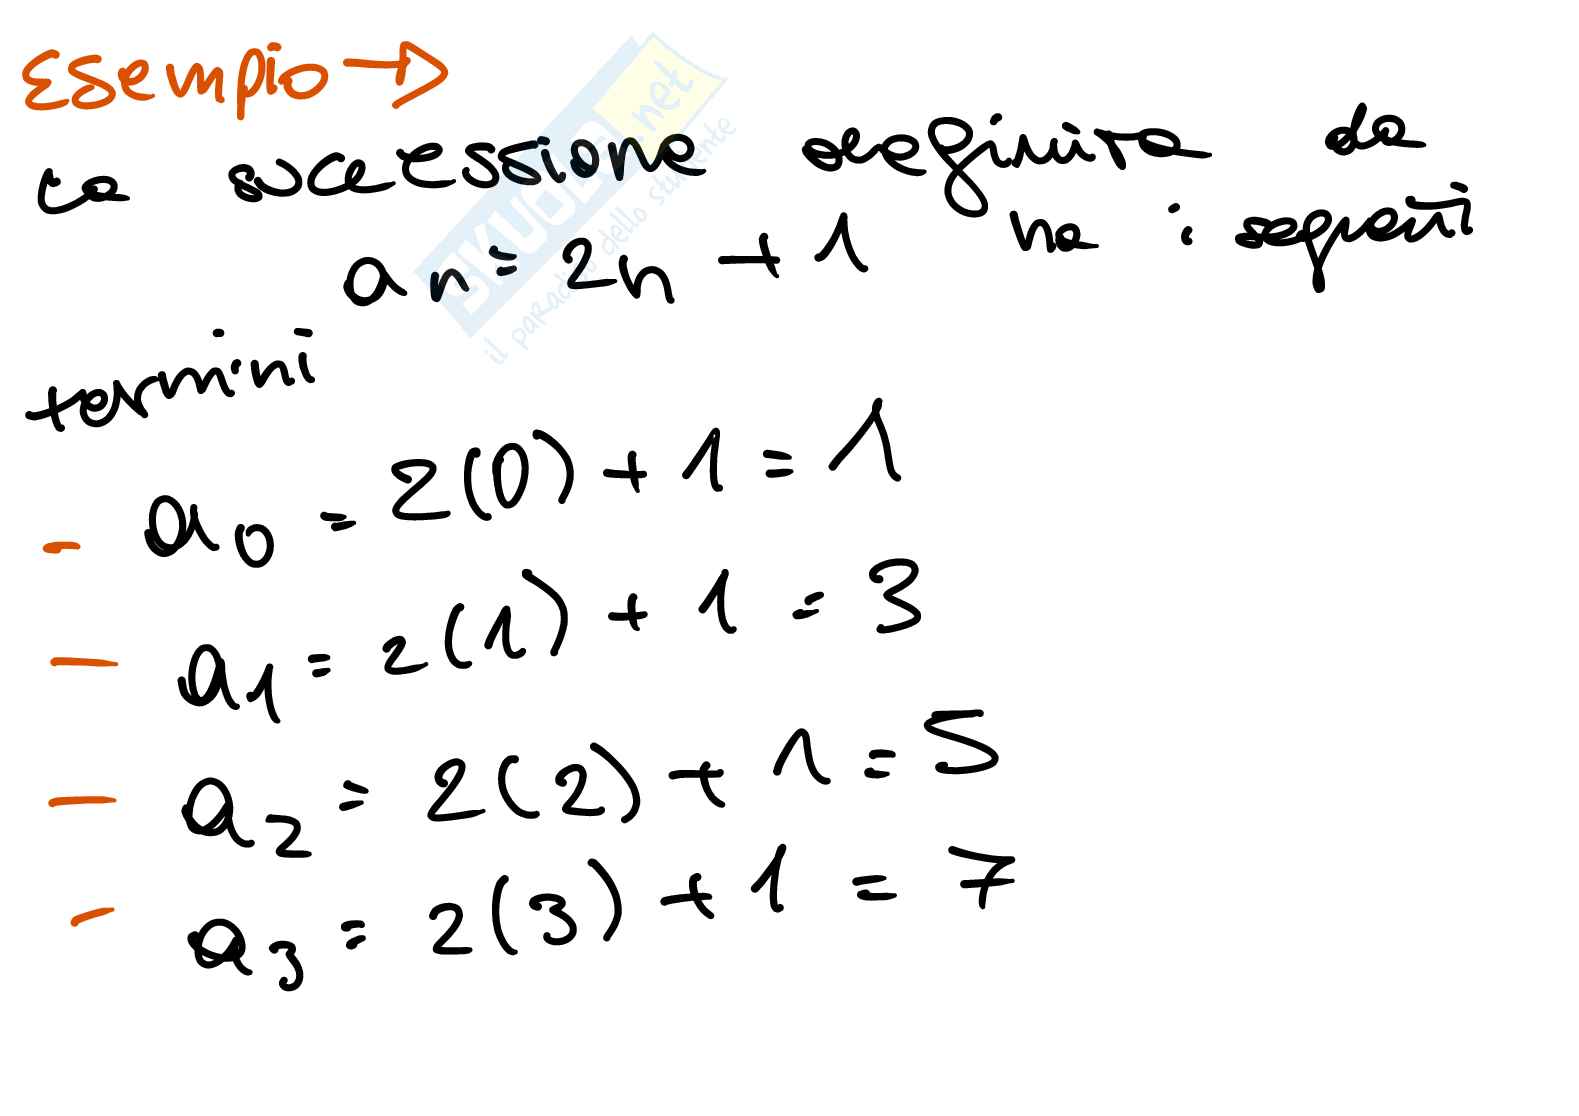 Esempio →
La successione definita da
an = 2n + 1 ha i seguenti
termini
- a0 = 2(0) + 1 = 1
- a1 = 2(1) + 1 = 3
- a2 = 2(2) + 1 = 5
- a3 = 2(3) + 1 = 7
SKUOLA.net
il paradiso dello studente